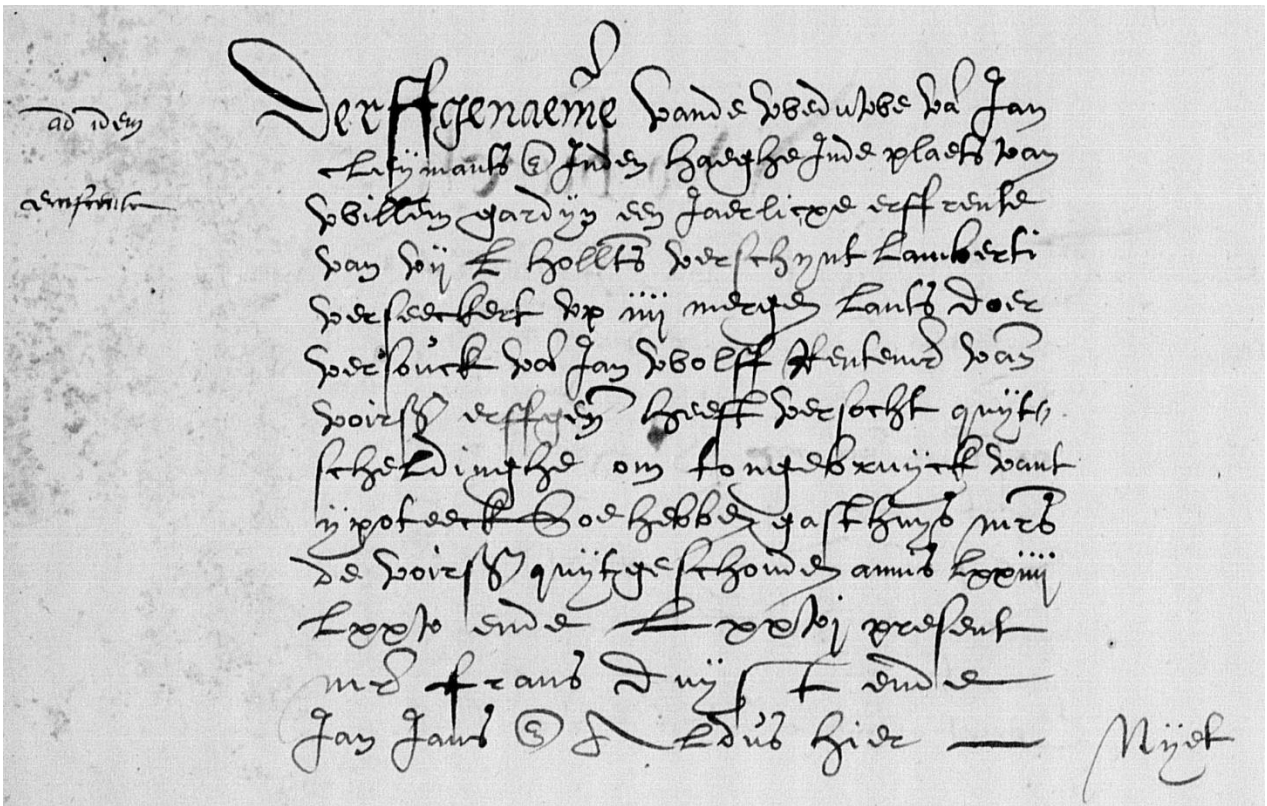 ad idem
Derffgenaeme vande weduwe va Jan
Cleymants Inden haeghe Inde plaets van
willem gardyn een Jaerlicxe erffrente
van vij L hollts verschynt Lamberti
verseeckert up iiij mergen Lants doer
versouck va Jan wolff Rentemr van
voirss erffgen heeft versocht quyt=
scheldinghe om tongebruyck vant
ypoteeck Soe hebben gasthuys mrs
de voirss quytgeschouden annis Lxxiiij
Lxxv ende Lxxvj present
mr frans duyst ende
Jan Jans Ergo hier Nyet